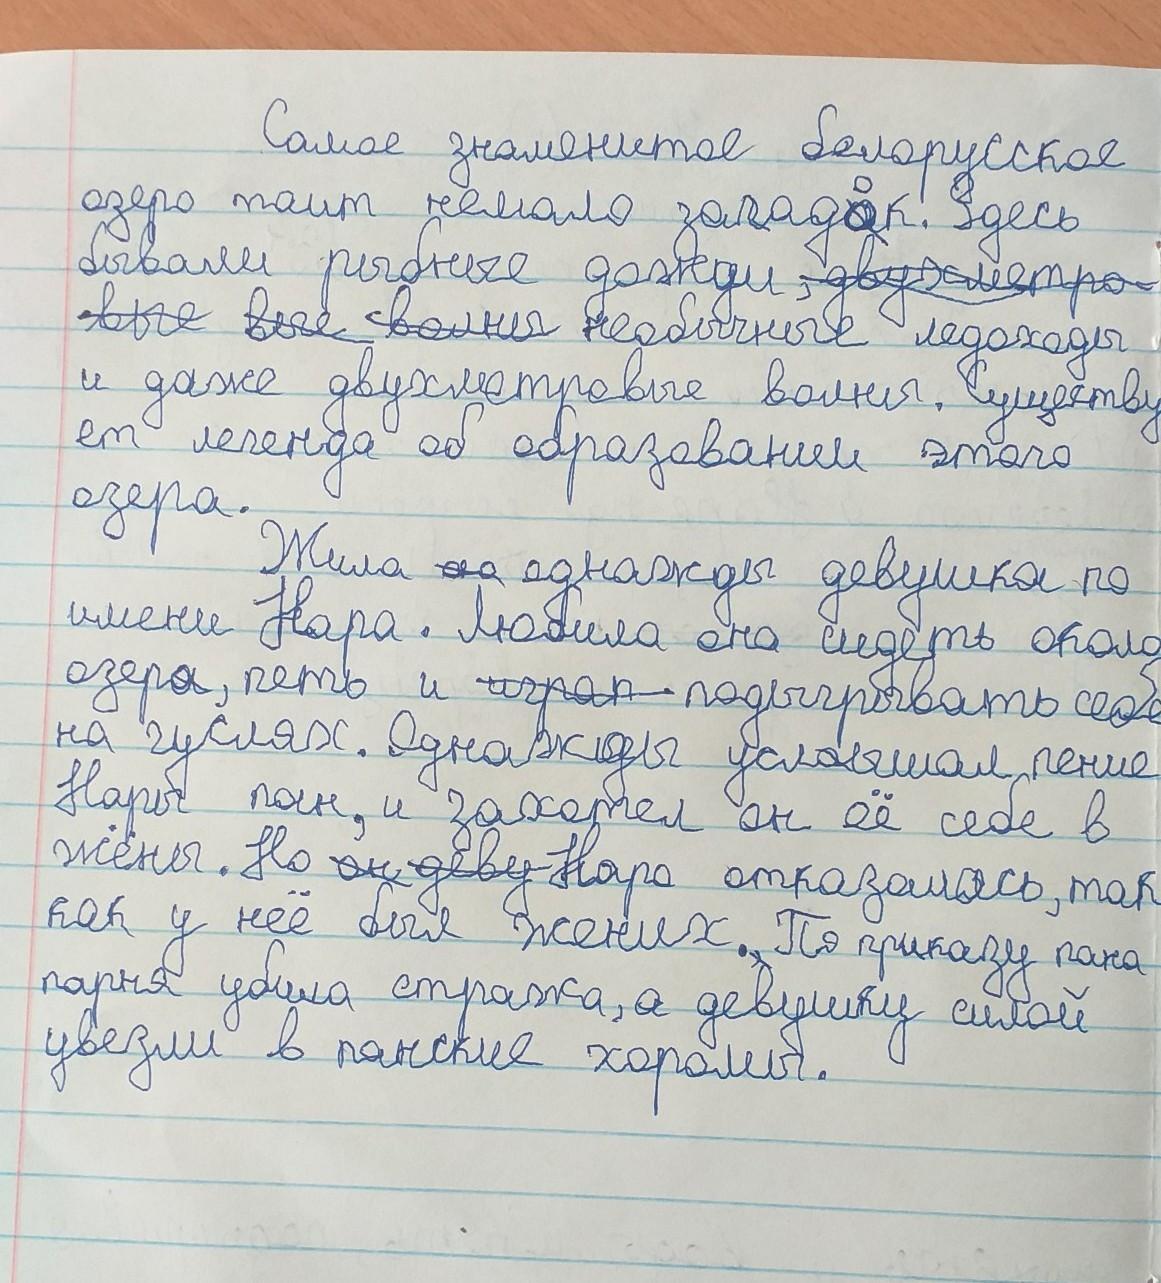 Самое знаменитое белорусское
озеро таит немало загадок. Здесь
бывали рыбные дожди, двухметро-
вые вые волны необычные ледоходы
и даже двухметровые волны. Существу
ет легенда об образовании этого
озера.
Жила на однажды девушка по
имени Нара. Любила она сидеть около
озера, петь и играп подыгрывать себе
на гуслях. Однажды услышал пение
Нары пан, и захотел он её себе в
жёны. Но он деву Нара отказалась, так
как у неё был жених. По приказу пана
парня убила стража, а девушку силой
увезли в панские хоромы.